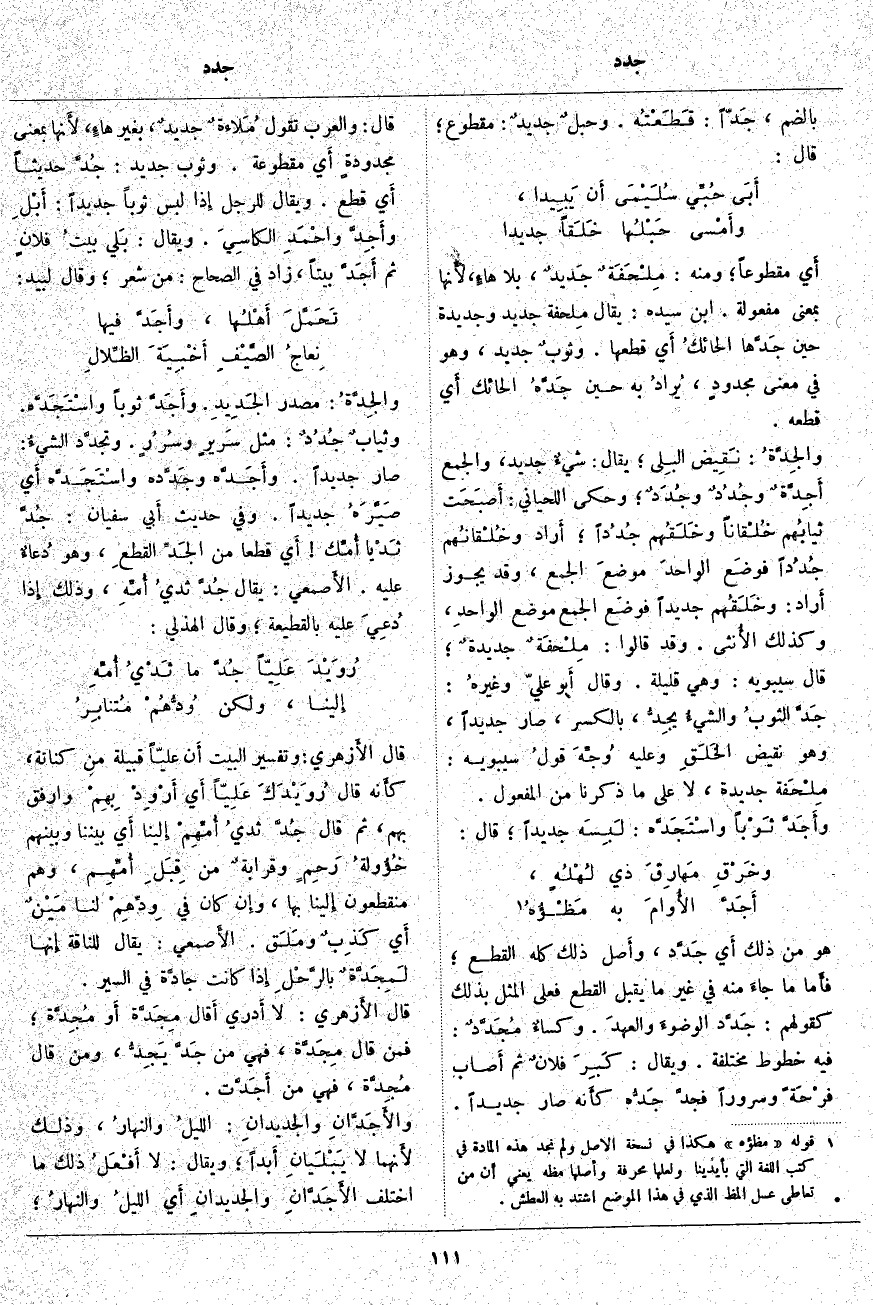 جدد
جدد
بالضم ، جَدّاً : قَطَعْتُه . وحبلٌ جديدٌ : مقطوع ؛
قال :
أَبَى حُبِّي سُلَيْمَى أَن يَبِيدا ،
وأَمْسى حَبْلُها خَلَقاً جديدا
أَي مقطوعاً ؛ ومنه : مِلْحَفَةٌ جَديدٌ ، بلا هاءٍ ، لأَنها
بمعنى مفعولة . ابن سيده : يقال ملحفة جديد وجديدة
حين جَدَّها الحائكُ أَي قطعها . وثوبٌ جديد ، وهو
في معنى مجدودٍ ، يُرادُ به حين جَدَّهُ الحائك أَي
قطعه .
والجِدَّةُ : نَقِيض البِلى ؛ يقال : شيءٌ جديد ، والجمع
أَجِدَّةٌ وجُدُدٌ وجُدَدٌ ؛ وحكى اللحياني : أَصبَحَت
ثيابُهم خُلْقاناً وخَلَقُهم جُدُداً ؛ أَراد وخُلْقانُهم
جُدُداً فوضَع الواحدَ موضعَ الجمع ، وقد يجوز
أَراد : وخَلَقُهم جديداً فوضَع الجمع موضع الواحدِ ،
وكذلك الأُنثى . وقد قالوا : مِلْحفَةٌ جديدةٌ ؛
قال سيبويه : وهي قليلة . وقال أَبو عليّ وغيرهُ :
جَدَّ الثوبُ والشيءُ يجِدُّ ، بالكسر ، صار جديداً ،
وهو نقيض الخَلَقِ وعليه وُجِّهَ قولُ سيبويه :
مِلْحَفة جديدة ، لا على ما ذكرنا من المفعول .
وأَجَدَّ ثَوْباً واسْتَجَدَّه : لَبِسَه جديداً ؛ قال :
وخَرْقِ مَهارِقَ ذي لُهْلُهٍ ،
أَجَدَّ الأُوامَ به مَظْؤُهُ١
هو من ذلك أَي جَدَّد ، وأَصل ذلك كله القطع ؛
فأَما ما جاءَ منه في غير ما يقبل القطع فعلى المثل بذلك
كقولهم : جَدَّد الوضوءَ والعهدَ . وكساءٌ مُجَدَّدٌ :
فيه خطوط مختلفة . ويقال : كَبِرَ فلانٌ ثم أَصاب
فرْحَةً وسروراً فجدَّ جَدُّه كأَنه صار جديداً .
١ قوله « مظؤه » هكذا في نسخة الاصل ولم نجد هذه المادة في
كتب اللغة التي بأيدينا ولعلها محرفة وأصلها مظه يعني أن من
تعاطى عسل المظ الذي في هذا الموضع اشتد به العطش .
قال : والعرب تقول مُلاءةٌ جديدٌ ، بغير هاءٍ ، لأَنها بمعنى
مجدودةٍ أَي مقطوعة . وثوب جديد : جُدَّ حديثاً
أَي قطع . ويقال للرجل إذا لبس ثوباً جديداً : أَبْلِ
وأَجِدَّ واحْمَدِ الكاسِيَ . ويقال : بَلي بيتُ فلانٍ
ثم أَجَدَّ بيتاً ، زاد في الصحاح : من شعر ؛ وقال لبيد :
تَحَمَّلَ أَهْلُها ، وأَجَدَّ فيها
نِعاجُ الصَّيْفِ أَخْبِيَةَ الظِّلالِ
والجِدَّةُ : مصدر الجَدِيدِ . وأَجَدَّ ثوباً واسْتَجَدَّه .
وثيابٌ جُدُدٌ : مثل سَريرٍ وسُرُرٍ . وتجدَّد الشيءُ :
صار جديداً . وأَجَدَّه وجَدَّده واسْتَجَدَّه أَي
صَيَّرَهُ جديداً . وفي حديث أَبي سفيان : جُدَّ
ثَدْيا أُمِّك ! أَي قطعا من الجَدِّ القطعِ ، وهو دُعاءٌ
عليه . الأَصمعي : يقال جُدَّ ثديُ أُمِّهِ ، وذلك إذا
دُعيَ عليه بالقطيعة ؛ وقال الهذلي :
رُوَيْدَ عَلِيّاً جُدَّ ما ثَدْيُ أُمِّهِ
إلينا ، ولكن وُدُّهُمْ مُتنابِرُ
قال الأَزهري : وتفسير البيت أَن عليّاً قبيلة من كنانة ،
كأَنه قال رُوَيْدَكَ عَلِيّاً أَي أَرْوِدْ بِهِمْ وارفق
بهم ، ثم قال جُدَّ ثديُ أُمِّهِمْ إلينا أَي بيننا وبينهم
خُؤولةُ رَحِمٍ وقرابةٌ من قِبَلِ أُمِّهِم ، وهم
منقطعون إلينا بها ، وإن كان في وِدِّهِمْ لنا مَيْنٌ
أَي كَذِبٌ ومَلَق . الأَصمعي : يقال للناقة إنها
لَمِجَدَّةٌ بالرَّحْلِ إذا كانت جادَّة في السير .
قال الأَزهري : لا أَدري أَقال مِجَدَّة أو مُجِدَّة ؛
فمن قال مِجَدَّة ، فهي من جَدَّ يَجِدُّ ، ومن قال
مُجِدَّة ، فهي من أَجَدَّت .
والأَجَدَّانِ والجديدانِ : الليلُ والنهارُ ، وذلك
لأَنهما لا يَبْلَيانِ أَبداً ؛ ويقال : لا أَفْعَلُ ذلك ما
اختلف الأَجَدَّانِ والجديدانِ أَي الليلُ والنهارُ ؛
١١١